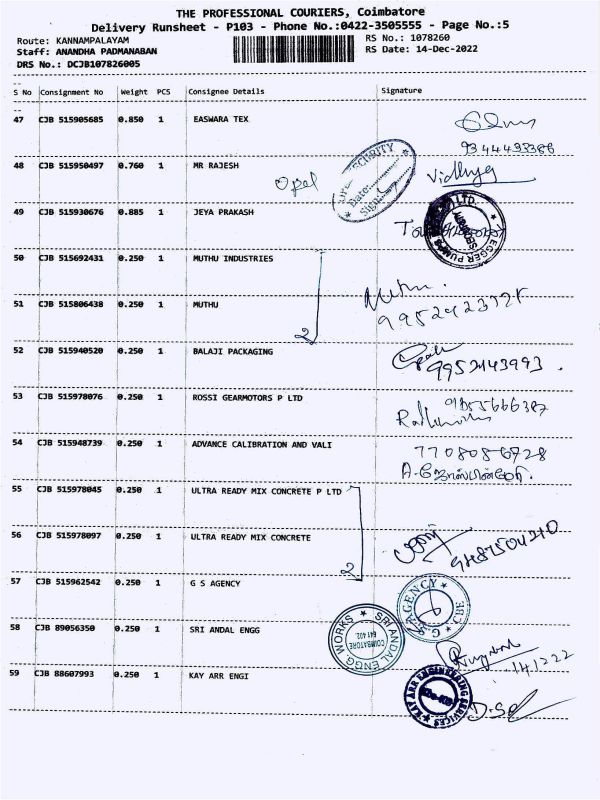 THE PROFESSIONAL COURIERS, Coimbatore
Delivery Runsheet - P103 - Phone No.:0422-3505555 - Page No.:5
Route: KANNAMPALAYAM RS No.: 1078260
Staff: ANANDHA PADMANABAN RS Date: 14-Dec-2022
DRS No.: DCJB107826005
S No Consignment No Weight PCS Consignee Details Signature
47 CJB 515905685 0.850 1 EASWARA TEX
48 CJB 515950497 0.760 1 MR RAJESH
Opel SECURITY Vidhya
Date:
Sign:
49 CJB 515930676 0.885 1 JEYA PRAKASH
50 CJB 515692431 0.250 1 MUTHU INDUSTRIES
51 CJB 515806438 0.250 1 MUTHU
2
52 CJB 515940520 0.250 1 BALAJI PACKAGING
9952143993
53 CJB 515978076 0.250 1 ROSSI GEARMOTORS P LTD
54 CJB 515948739 0.250 1 ADVANCE CALIBRATION AND VALI
55 CJB 515978045 0.250 1 ULTRA READY MIX CONCRETE P LTD
56 CJB 515978097 0.250 1 ULTRA READY MIX CONCRETE
2
9487504210
57 CJB 515962542 0.250 1 G S AGENCY
G.S. AGENCY CBE
58 CJB 89056350 0.250 1 SRI ANDAL ENGG
SRI ANDAL ENGG. WORKS
COIMBATORE
641 402.
141222
59 CJB 88607993 0.250 1 KAY ARR ENGI
KAY ARR ENGINEERING SERVICES